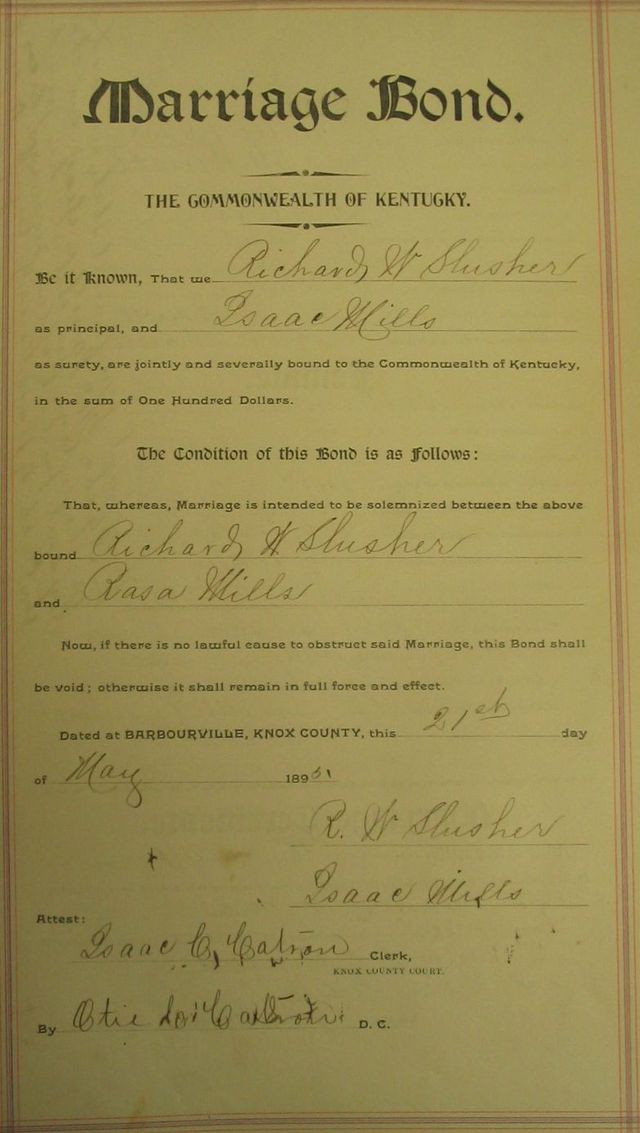 Marriage Bond.
THE COMMONWEALTH OF KENTUCKY.
Be it Known, That we Richard W Slusher
as principal, and Isaac Mills
as surety, are jointly and severally bound to the Commonwealth of Kentucky,
in the sum of One Hundred Dollars.
The Condition of this Bond is as Follows:
That, whereas, Marriage is intended to be solemnized between the above
bound Richard W Slusher
and Rasa Mills
Now, if there is no lawful cause to obstruct said Marriage, this Bond shall
be void; otherwise it shall remain in full force and effect.
Dated at BARBOURVILLE, KNOX COUNTY, this 21st day
of May 189
R. W Slusher
Isaac Mills
Attest:
Isaac C, Catron Clerk,
KNOX COUNTY COURT.
By Otie Catron D. C.